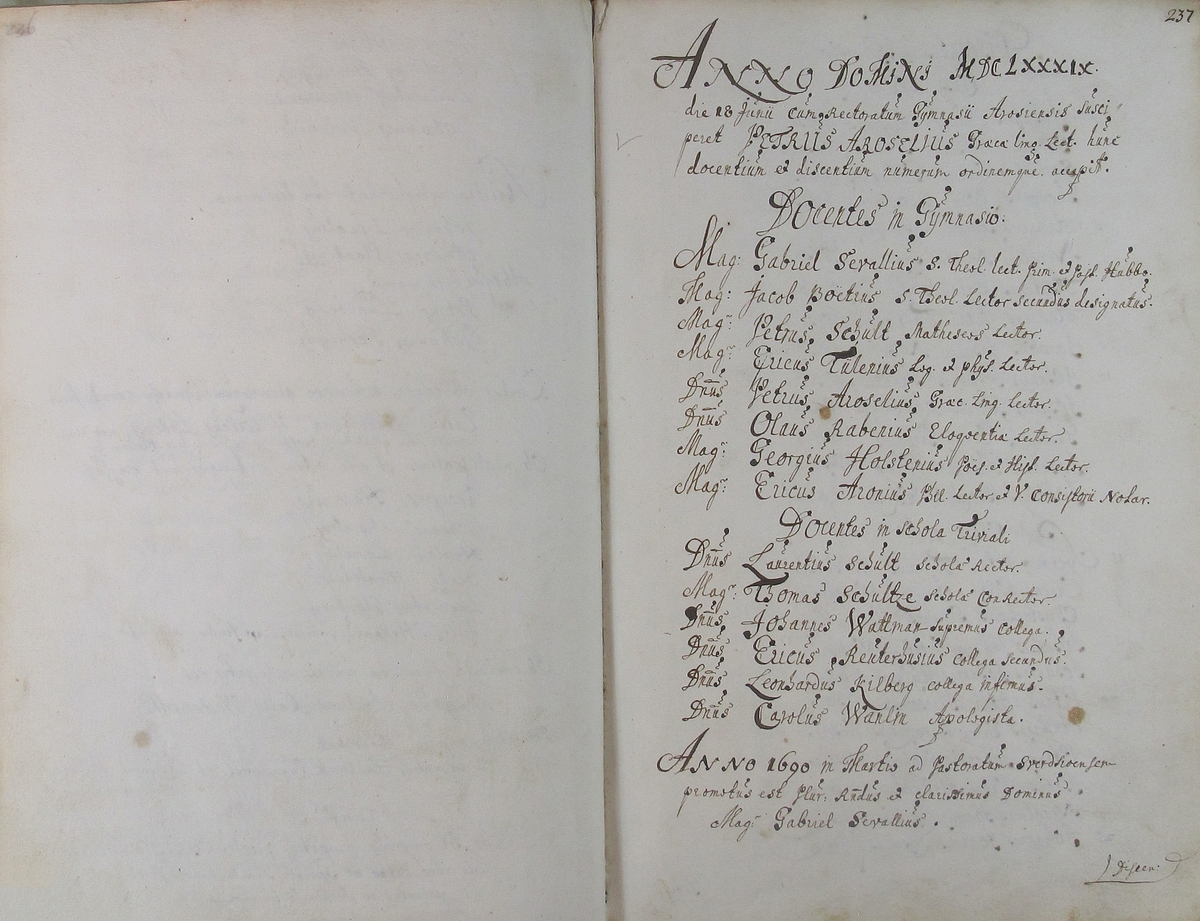 236
237
ANNO DOMINI MDCLXXXIX.
die 18 Junii cum Rectoratum Gymnasii Arosiensis susci-
peret PETRUS AROSELIUS Græcæ ling. Lect. hunc
docentium et discentium numerum ordinemque accepit.
Docentes in Gymnasio:
Mag: Gabriel Sevallius S. Theol. lect. prim. et past. Hubbo.
Mag: Jacob Boëtius S. Theol. Lector secundus designatus.
Mag: Petrus Schult Matheseos Lector.
Mag: Ericus Tulenius Log. et phys. Lector.
Dnus Petrus Aroselius Græc. Ling. Lector.
Dnus Olaus Rabenius Eloqventiæ Lector.
Mag: Georgius Holstenius Poës. et Hist. Lector.
Mag: Ericus Aronius Lector et V. Consistorii Notar.
Docentes in schola Triviali
Dnus Laurentius Schult scholæ Rector.
Mag: Thomas Schultze scholæ ConRector.
Dnus Johannes Wattman supremus Collega.
Dnus Ericus Reuterhusius Collega secundus.
Dnus Leonhardus Kilberg collega infimus.
Dnus Carolus Wanlin Apologista.
ANNO 1690 in Martio ad Pastoratum Sverdsioensem
promotus est Plur: Rndus et clarissimus Dominus
Mag: Gabriel Sevallius.
Discen: